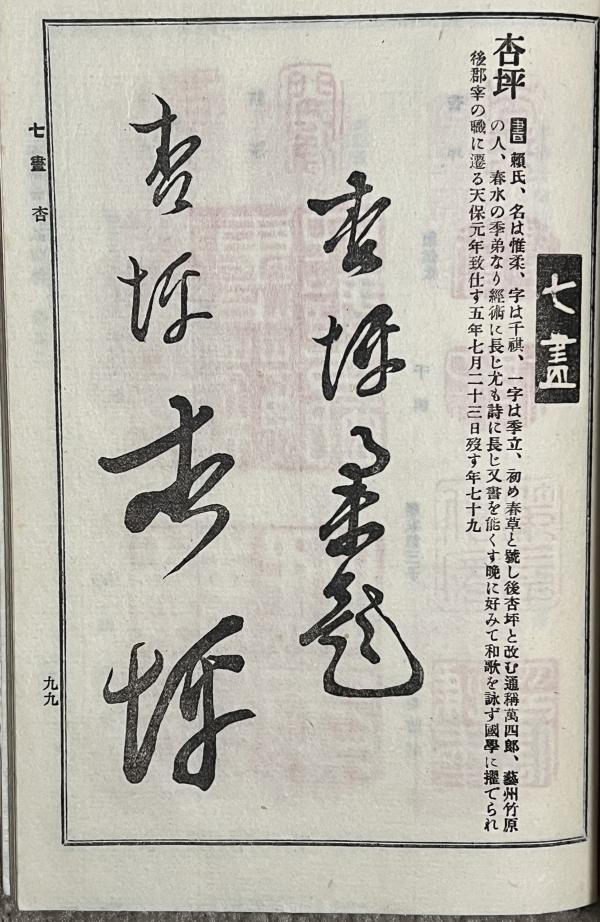 七畫
杏坪
書 賴氏、名は惟柔、字は千祺、一字は季立、初め春草と號し後杏坪と改む通稱萬四郎、藝州竹原
の人、春水の季弟なり經術に長じ尤も詩に長じ又書を能くす晩に好みて和歌を詠ず國學に擢てられ
後郡宰の職に遷る天保元年致仕す五年七月二十三日歿す年七十九
杏坪柔題
杏坪
杏坪
七畫 杏
九九